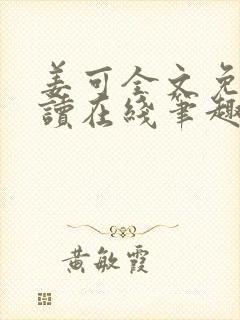 姜可全文免
讀在綫筆趣
黄敏霞